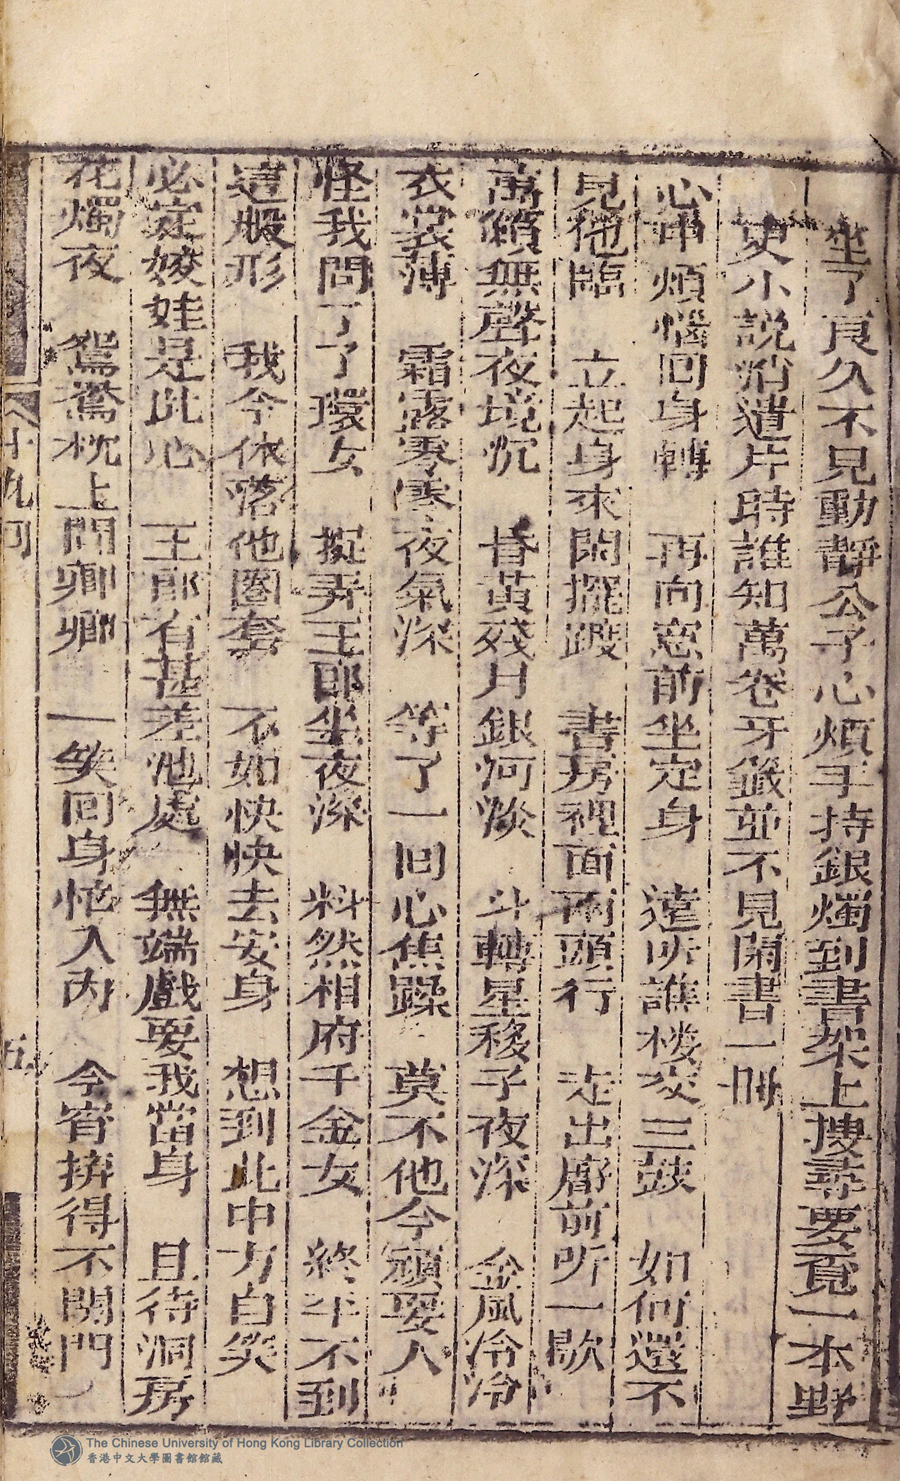 坐了良久不見動靜公子心煩手持銀燭到書架上搜尋要覔一本野
史小說消遣片時誰知萬卷牙籤並不見閑書一冊
心中煩惱回身轉　再向窓前坐定身　遠听譙楼交三鼓　如何還不
見他臨　立起身來閑擺踱　書房裡面兩頭行　走出廊前听一歇
萬籟無聲夜境沉　昏黃殘月銀河淡　斗轉星移子夜深　金風冷冷
衣裳薄　霜露零零夜氣深　等了一回心焦躁　莫不他今頑耍人
怪我問了了環女　捉弄王郎坐夜深　料然相府千金女　終半不到
這般形　我今依落他圈套　不如快快去安身　想到此中方自笑
必定姣娃是此心　王郎有甚差池處　無端戲耍我當身　且待洞房
花燭夜　鴛鴦枕上問卿卿　一笑回身恰入內　今宵拚得不閑門
十九回
五
The Chinese University of Hong Kong Library Collection
香港中文大學圖書館館藏